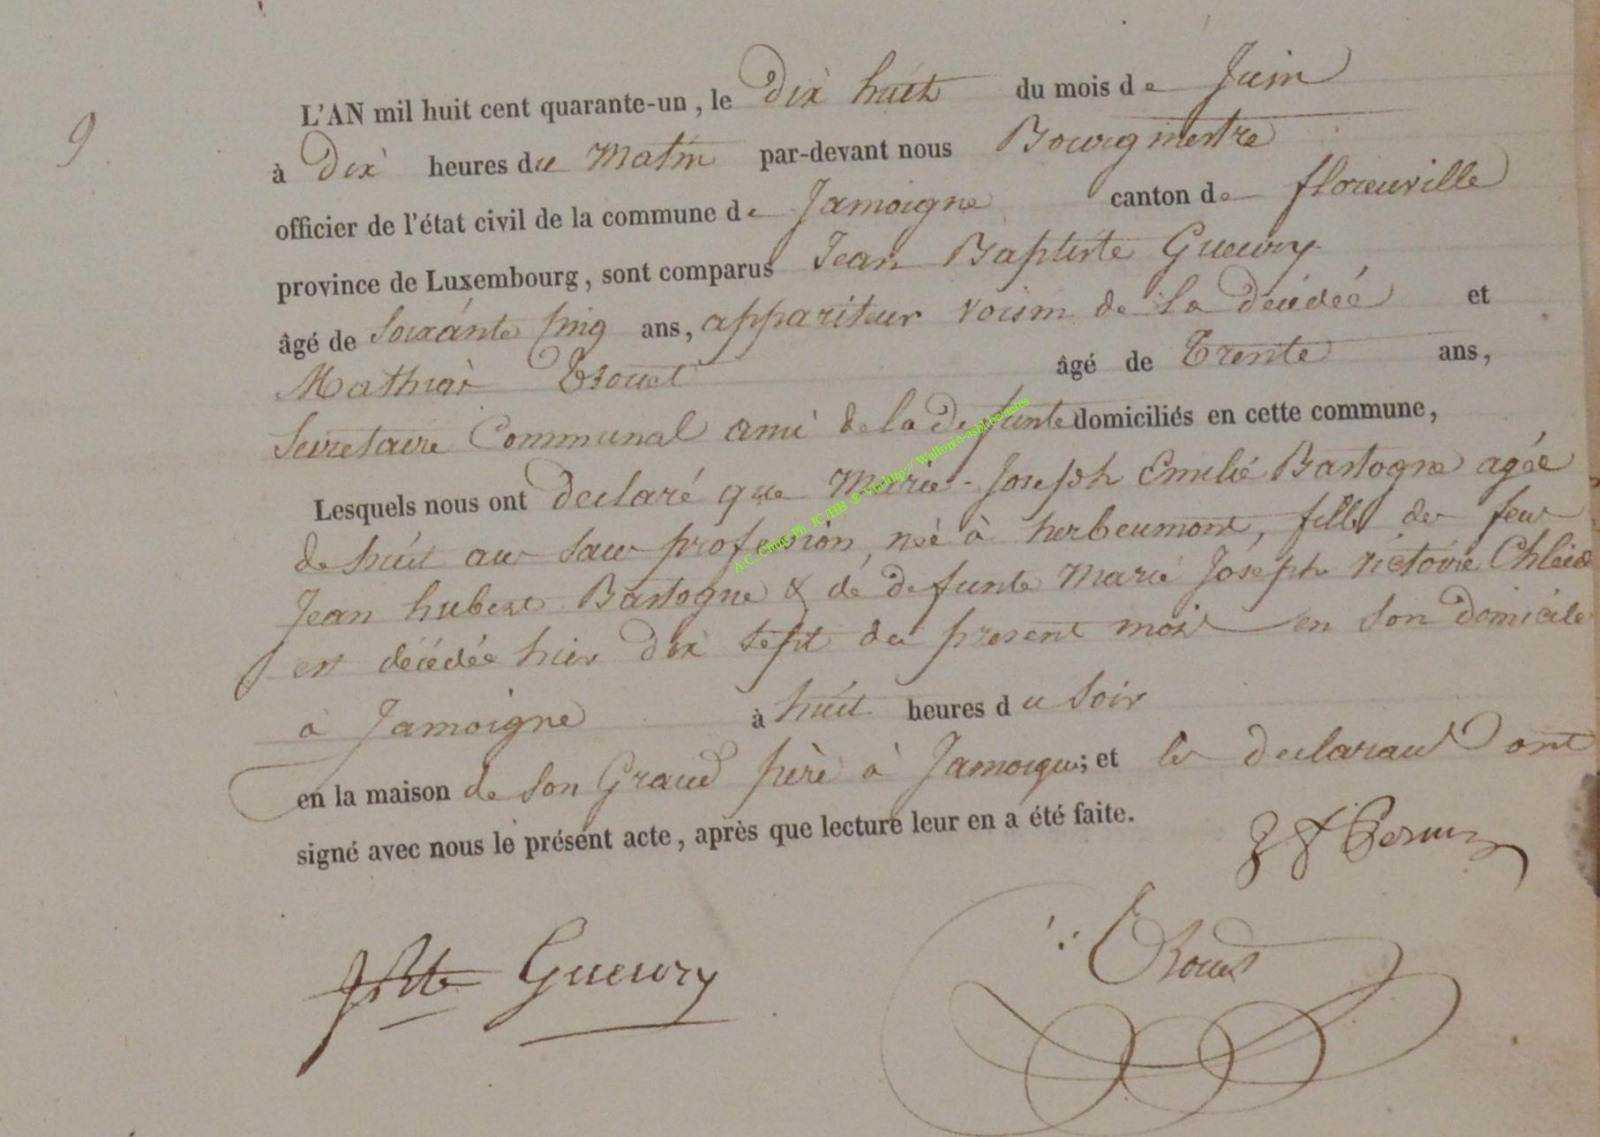 9
L'AN mil huit cent quarante-un, le dix huit du mois de Juin
à Dix heures du Matin par-devant nous Bourgmestre
officier de l'état civil de la commune de Jamoigne canton de florenville
province de Luxembourg, sont comparus Jean Baptiste Gueury
âgé de soixante cinq ans, appariteur voisin de la décédée et
Mathias Trouet âgé de Trente ans,
Secretaire Communal ami de la defunte domiciliés en cette commune,
Lesquels nous ont declaré que Marie-Joseph Emelie Bastogne agée
de huit ans sans profession, née à herbeumont, fille de feu
Jean hubert Bastogne & de defunte Marie Joseph Victoire
est décédée hier dix sept du present mois en son domicile
à Jamoigne à huit heures du soir
en la maison de son Grand père à Jamoigne; et les declarants ont
signé avec nous le présent acte, après que lecture leur en a été faite.
JBte Gueury
Trouet